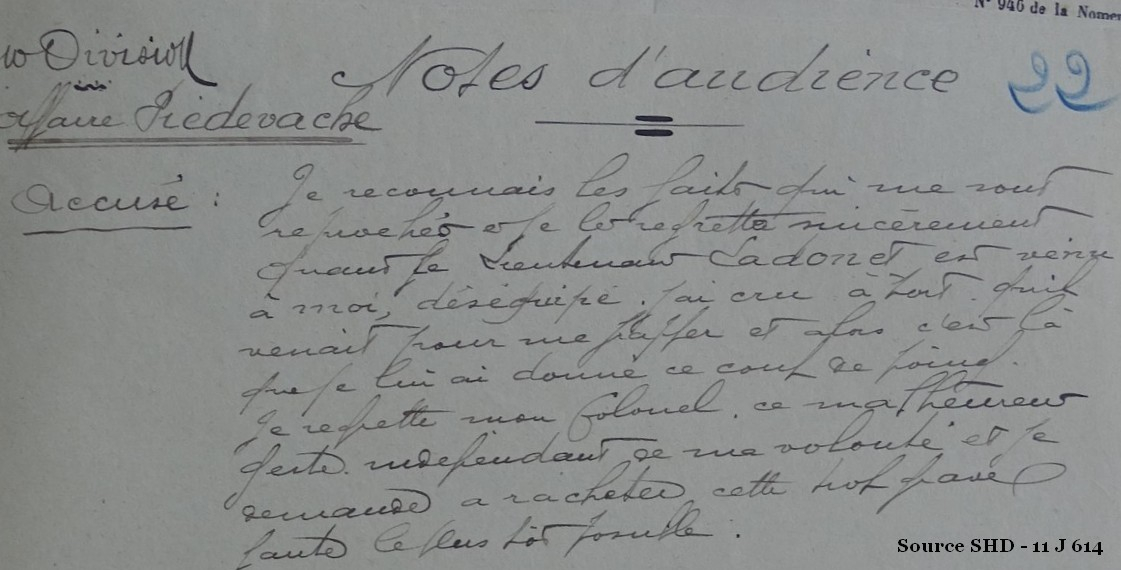 N° 946 de la Nomen
Division
Notes d'audience
22
affaire Piedevache
Accusé : Je reconnais les faits qui me sont
reprochés et je le regrette sincèrement
quant le Lieutenant Cadonet est venu
à moi, déséquipé. j'ai cru à tort qu'il
venait pour me frapper et alors c'est là
que je lui ai donné ce coup de poing.
Je regrette mon Colonel, ce malheureux
geste indépendant de ma volonté et je
demande a racheter cette trop grave
faute le plus tôt possible.
Source SHD - 11 J 614